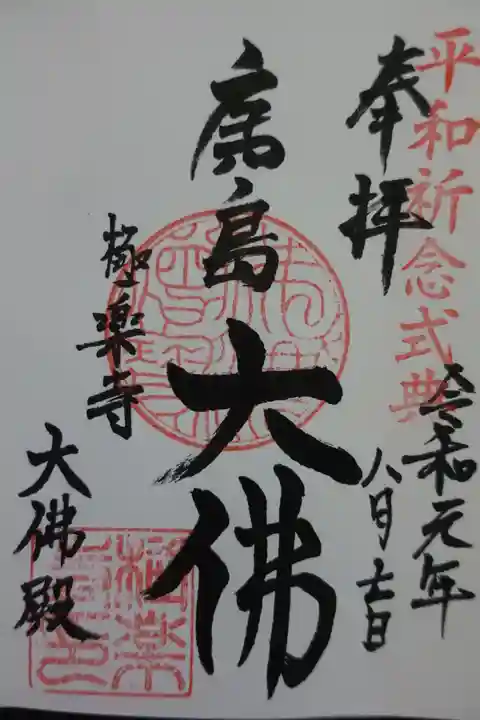 平和祈念式典
奉拝
令和元年
八月 日
廣島大佛
極楽寺
大佛殿